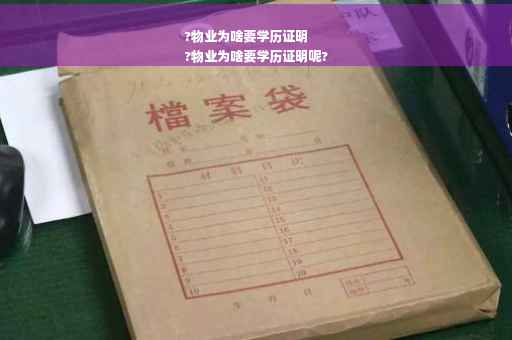 ?物业为啥要学历证明
?物业为啥要学历证明呢?
檔案袋
材料目次
1 11
2 12
3 13
4 14
5 15
6 16
7 17
8 18
9 19
10 20
年 月 日